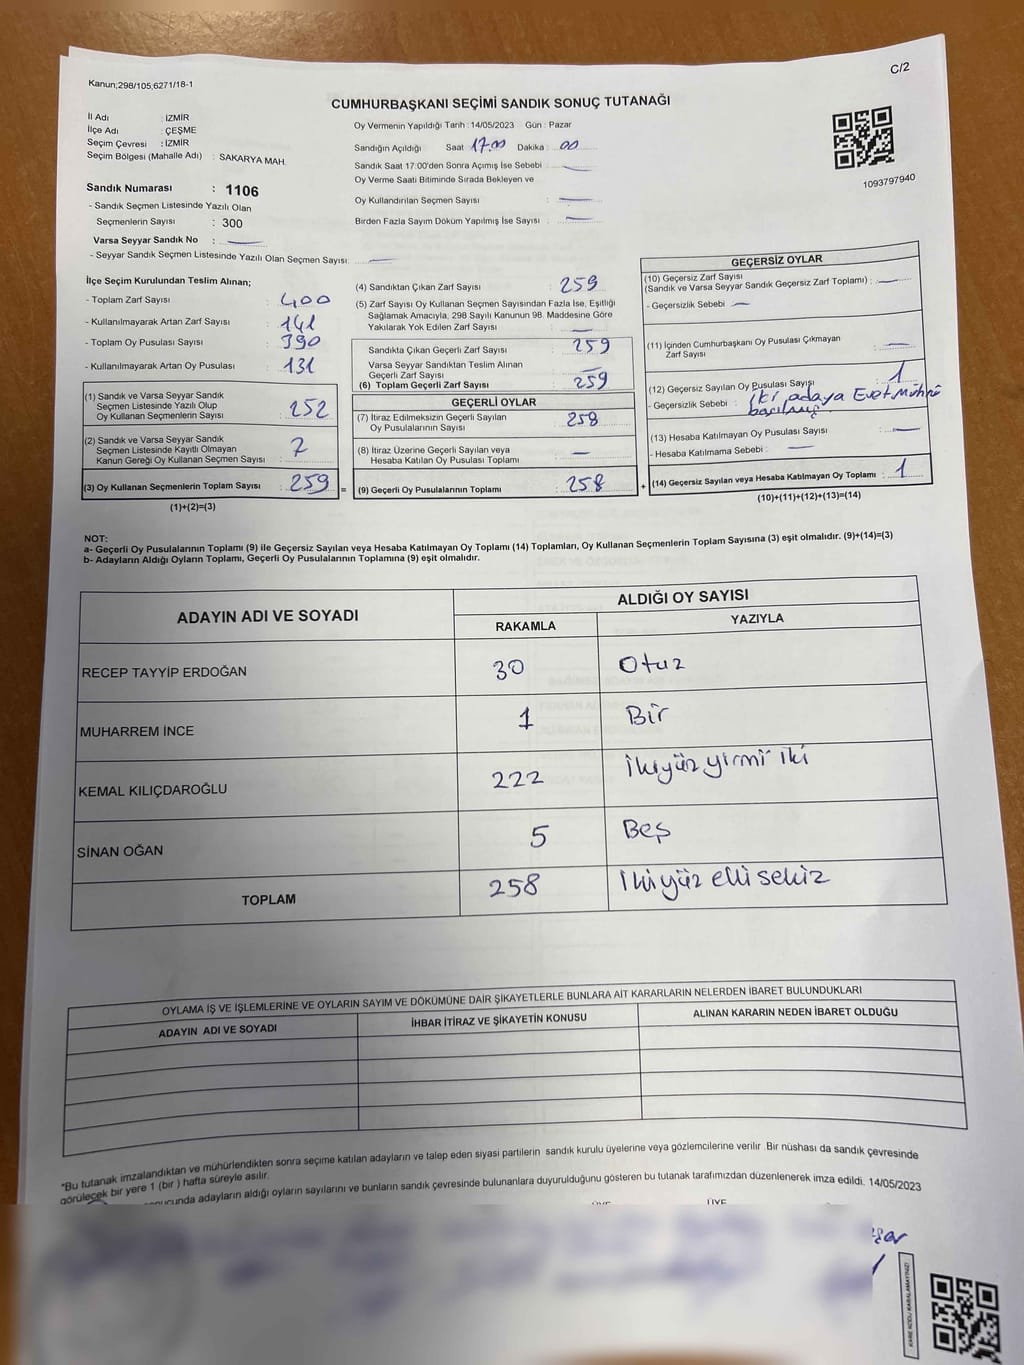 Kanun;298/105;6271/18-1
C/2
CUMHURBAŞKANI SEÇİMİ SANDIK SONUÇ TUTANAĞI
İl Adı : İZMİR
İlçe Adı : ÇEŞME
Seçim Çevresi : İZMİR
Seçim Bölgesi (Mahalle Adı) : SAKARYA MAH.
Sandık Numarası : 1106
- Sandık Seçmen Listesinde Yazılı Olan
Seçmenlerin Sayısı : 300
Varsa Seyyar Sandık No : —
- Seyyar Sandık Seçmen Listesinde Yazılı Olan Seçmen Sayısı: —
Oy Vermenin Yapıldığı Tarih : 14/05/2023 Gün : Pazar
Sandığın Açıldığı Saat 17.00 Dakika : 00
Sandık Saat 17:00'den Sonra Açımış İse Sebebi : —
Oy Verme Saati Bitiminde Sırada Bekleyen ve
Oy Kullandırılan Seçmen Sayısı : —
Birden Fazla Sayım Döküm Yapılmış İse Sayısı : —
1093797940
İlçe Seçim Kurulundan Teslim Alınan;
- Toplam Zarf Sayısı : 400
- Kullanılmayarak Artan Zarf Sayısı : 141
- Toplam Oy Pusulası Sayısı : 390
- Kullanılmayarak Artan Oy Pusulası : 131
(1) Sandık ve Varsa Seyyar Sandık
Seçmen Listesinde Yazılı Olup
Oy Kullanan Seçmenlerin Sayısı : 252
(2) Sandık ve Varsa Seyyar Sandık
Seçmen Listesinde Kayıtlı Olmayan
Kanun Gereği Oy Kullanan Seçmen Sayısı : 7
(3) Oy Kullanan Seçmenlerin Toplam Sayısı : 259
(1)+(2)=(3)
(4) Sandıktan Çıkan Zarf Sayısı : 259
(5) Zarf Sayısı Oy Kullanan Seçmen Sayısından Fazla İse, Eşitliği
Sağlamak Amacıyla, 298 Sayılı Kanunun 98. Maddesine Göre
Yakılarak Yok Edilen Zarf Sayısı : —
Sandıkta Çıkan Geçerli Zarf Sayısı : 259
Varsa Seyyar Sandıktan Teslim Alınan
Geçerli Zarf Sayısı : —
(6) Toplam Geçerli Zarf Sayısı : 259
GEÇERLİ OYLAR
(7) İtiraz Edilmeksizin Geçerli Sayılan
Oy Pusulalarının Sayısı : 258
(8) İtiraz Üzerine Geçerli Sayılan veya
Hesaba Katılan Oy Pusulası Toplamı : —
= (9) Geçerli Oy Pusulalarının Toplamı : 258
GEÇERSİZ OYLAR
(10) Geçersiz Zarf Sayısı
(Sandık ve Varsa Seyyar Sandık Geçersiz Zarf Toplamı) : —
- Geçersizlik Sebebi : —
(11) İçinden Cumhurbaşkanı Oy Pusulası Çıkmayan
Zarf Sayısı : —
(12) Geçersiz Sayılan Oy Pusulası Sayısı : 1
- Geçersizlik Sebebi : İki adaya Evet Mührü
basılmış
(13) Hesaba Katılmayan Oy Pusulası Sayısı : —
- Hesaba Katılmama Sebebi : —
+ (14) Geçersiz Sayılan veya Hesaba Katılmayan Oy Toplamı : 1
(10)+(11)+(12)+(13)=(14)
NOT:
a- Geçerli Oy Pusulalarının Toplamı (9) ile Geçersiz Sayılan veya Hesaba Katılmayan Oy Toplamı (14) Toplamları, Oy Kullanan Seçmenlerin Toplam Sayısına (3) eşit olmalıdır. (9)+(14)=(3)
b- Adayların Aldığı Oyların Toplamı, Geçerli Oy Pusulalarının Toplamına (9) eşit olmalıdır.
ADAYIN ADI VE SOYADI
ALDIĞI OY SAYISI
RAKAMLA YAZIYLA
RECEP TAYYİP ERDOĞAN 30 Otuz
MUHARREM İNCE 1 Bir
KEMAL KILIÇDAROĞLU 222 İkiyüz yirmi iki
SİNAN OĞAN 5 Beş
TOPLAM 258 İkiyüz elli sekiz
OYLAMA İŞ VE İŞLEMLERİNE VE OYLARIN SAYIM VE DÖKÜMÜNE DAİR ŞİKAYETLERLE BUNLARA AİT KARARLARIN NELERDEN İBARET BULUNDUKLARI
ADAYIN ADI VE SOYADI İHBAR İTİRAZ VE ŞİKAYETİN KONUSU ALINAN KARARIN NEDEN İBARET OLDUĞU
*Bu tutanak imzalandıktan ve mühürlendikten sonra seçime katılan adayların ve talep eden siyasi partilerin sandık kurulu üyelerine veya gözlemcilerine verilir. Bir nüshası da sandık çevresinde
görülecek bir yere 1 (bir ) hafta süreyle asılır.
adayların aldığı oyların sayılarını ve bunların sandık çevresinde bulunanlara duyurulduğunu gösteren bu tutanak tarafımızdan düzenlenerek imza edildi. 14/05/2023
ÜYE
KARE KODU KARALAMAYINIZ!